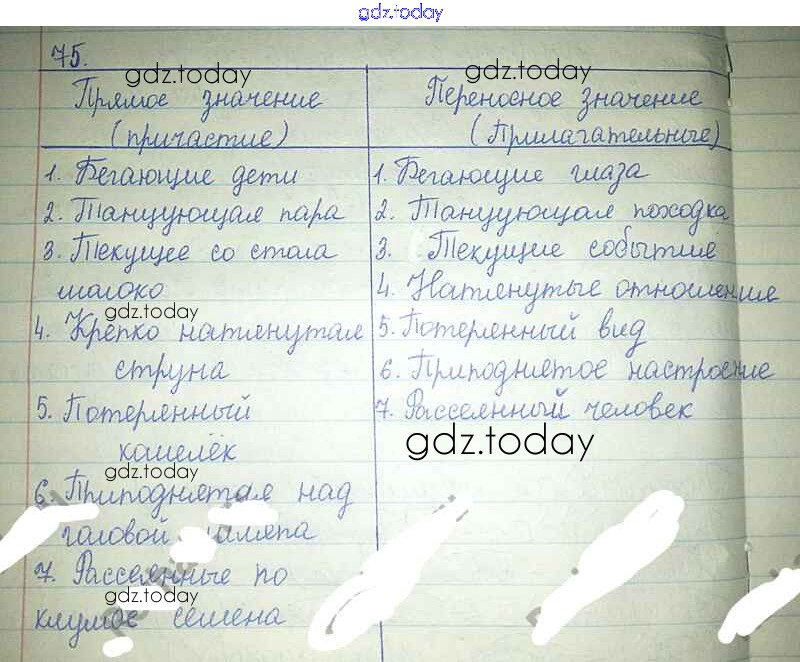 gdz.today
75.
gdz.today
gdz.today
Прямое значение
(причастие)
1. Бегающие дети
2. Танцующая пара
3. Текущее со стола
молоко
gdz.today
4. Крепко натянутая
струна
5. Потерянный
кошелёк
gdz.today
6. Приподнятая над
головой шляпа
7. Рассеянные по
gdz.today
клумбе семена
Переносное значение
(Прилагательные)
1. Бегающие глаза
2. Танцующая походка
3. Текущие событие
4. Натянутые отношение
5. Потерянный вид
6. Приподнятое настроение
7. Рассеянный человек
gdz.today